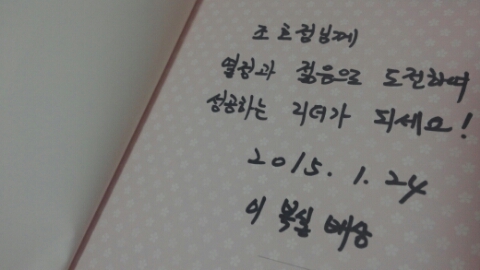 조효정님께
열정과 젊음으로 도전하며
성공하는 리더가 되세요!
2015. 1. 24
이 복실